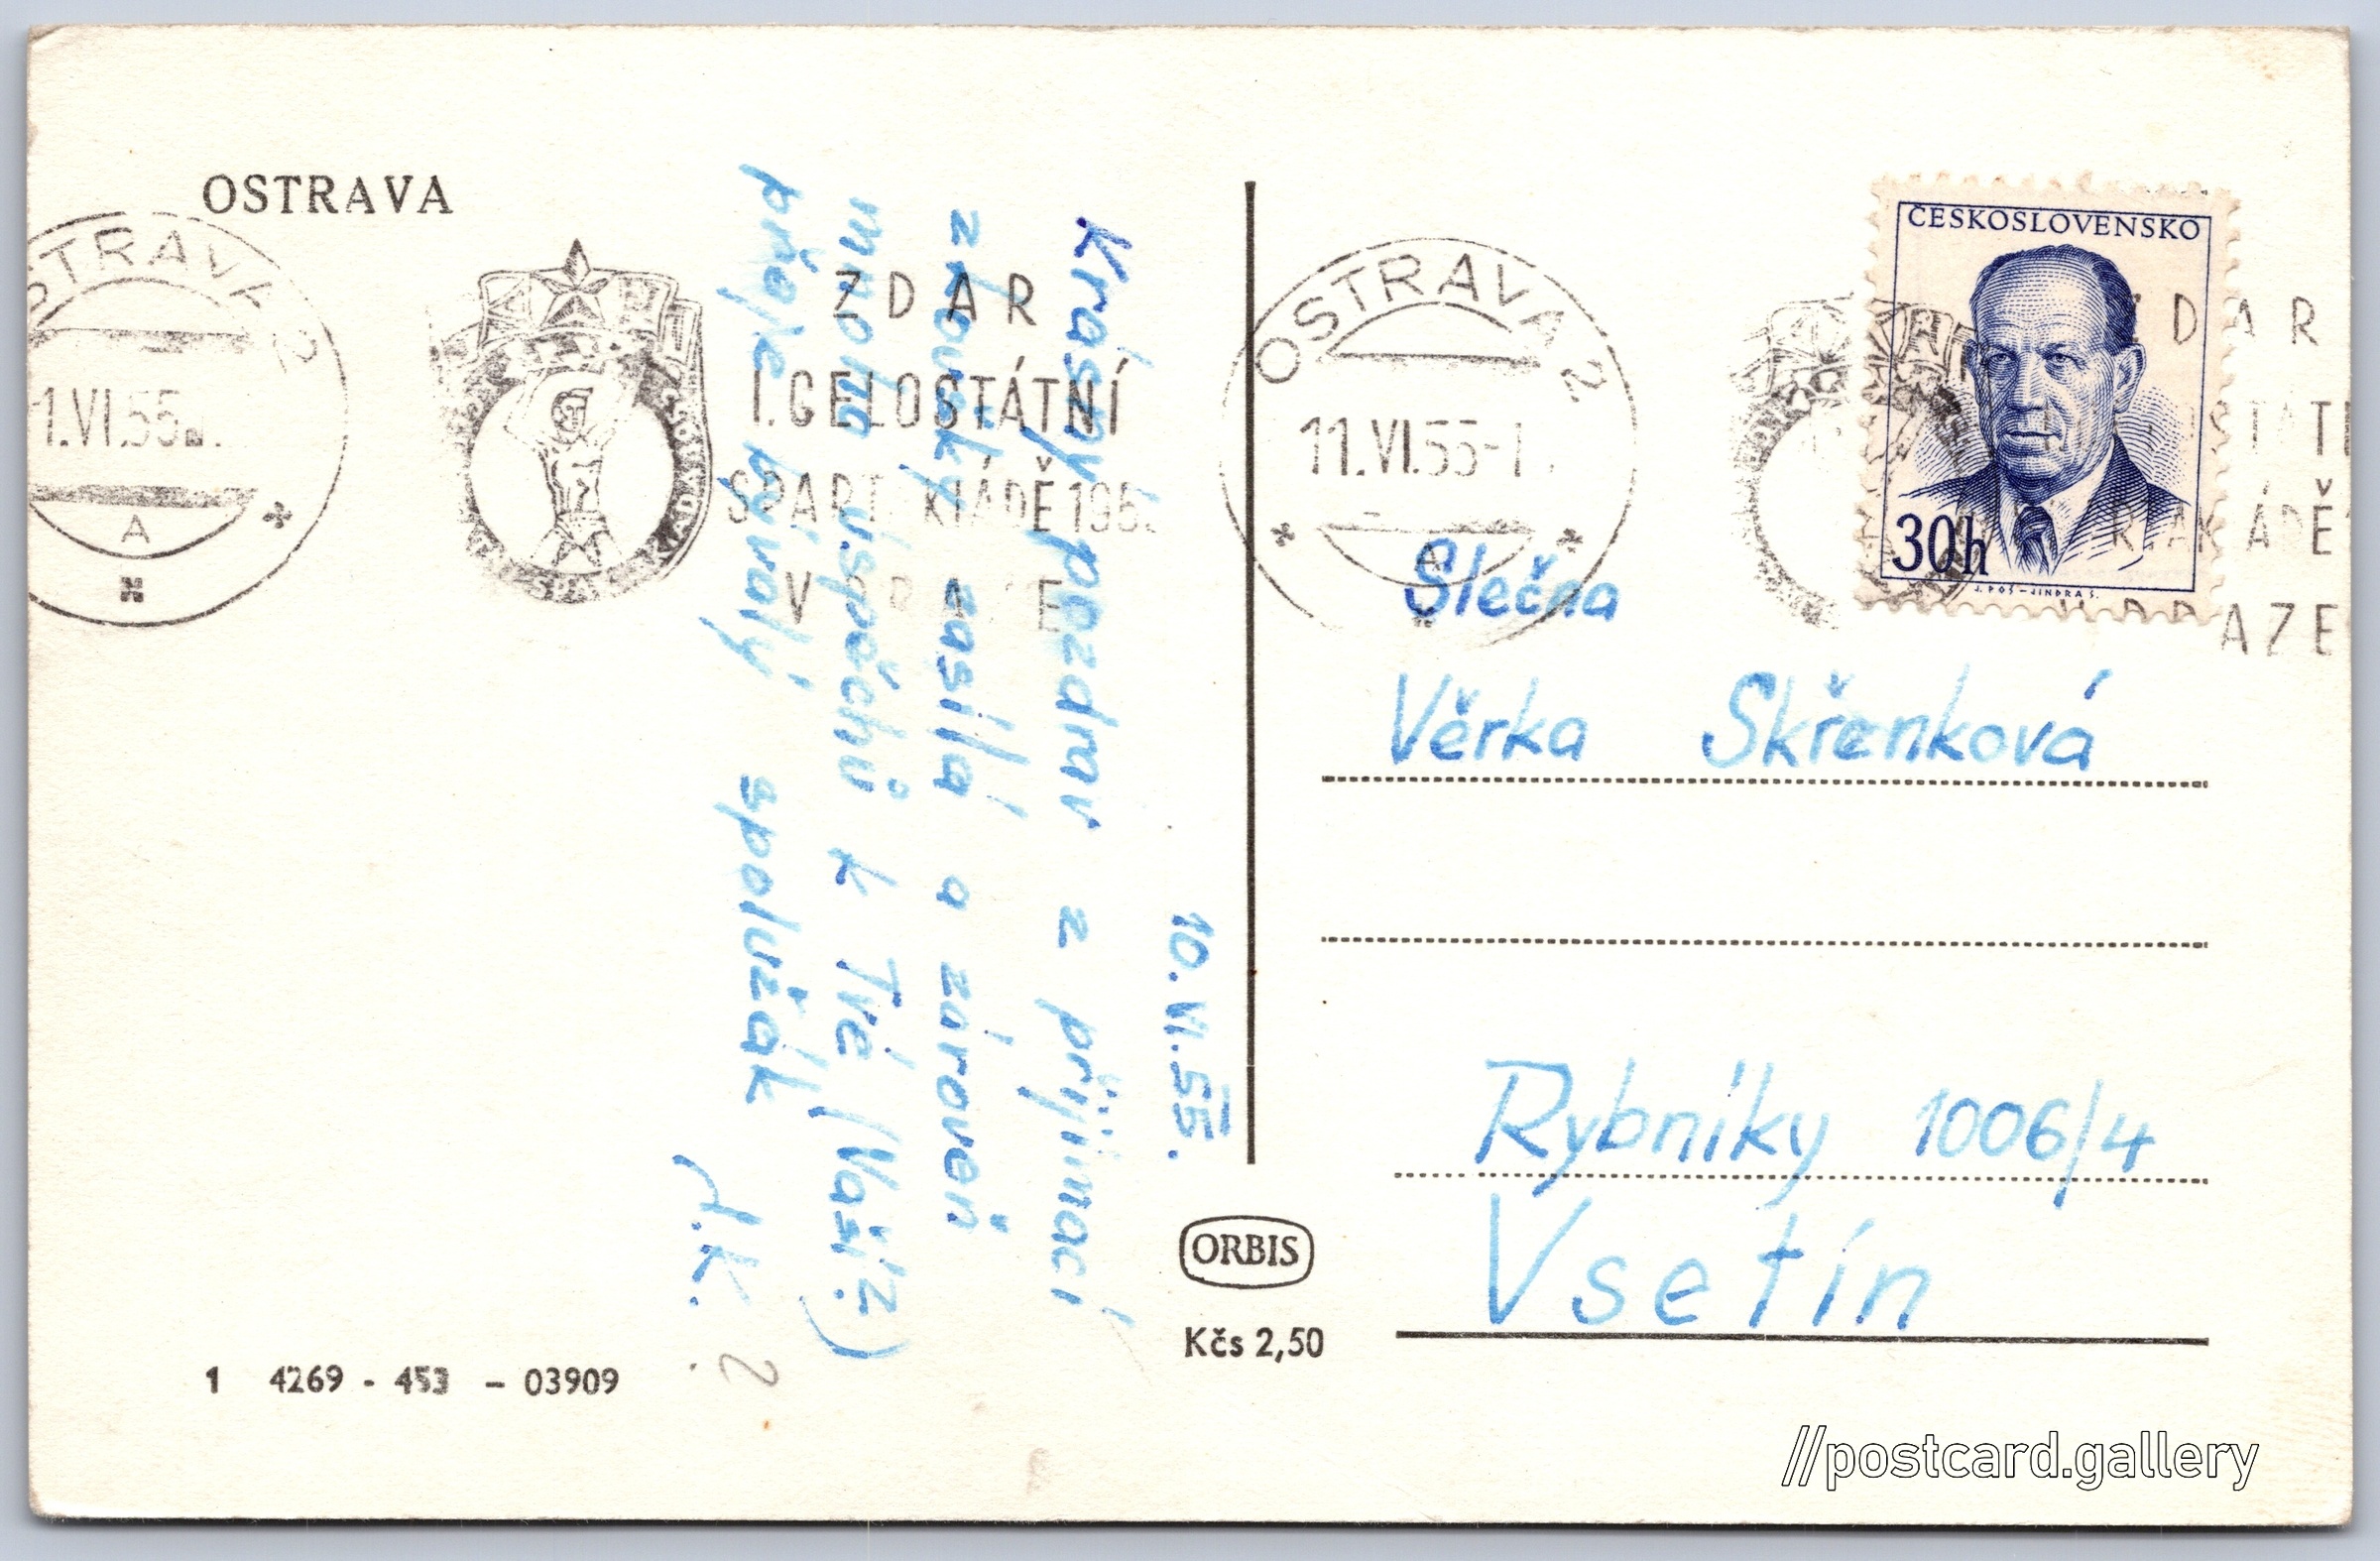 OSTRAVA
OSTRAVA 2
11.VI.55-1
A
ZDAR
I. CELOSTÁTNÍ
SPART KIÁDĚ 195
V
ČESKOSLOVENSKO
30h
J. POŠ – JINDRA S.
DAR
RIAKÁDĚ
AZE
10.VI.55.
Krásný pozdrav z přijímací
zkoušky zasílá a zároveň
mnoho úspěchů k Tvé (Vaší z.)
přeje bývalý spolužák
J.K.
2
Slečna
Věrka Skřenková
Rybníky 1006/4
Vsetín
ORBIS
Kčs 2,50
1 4269 - 453 - 03909
//postcard.gallery